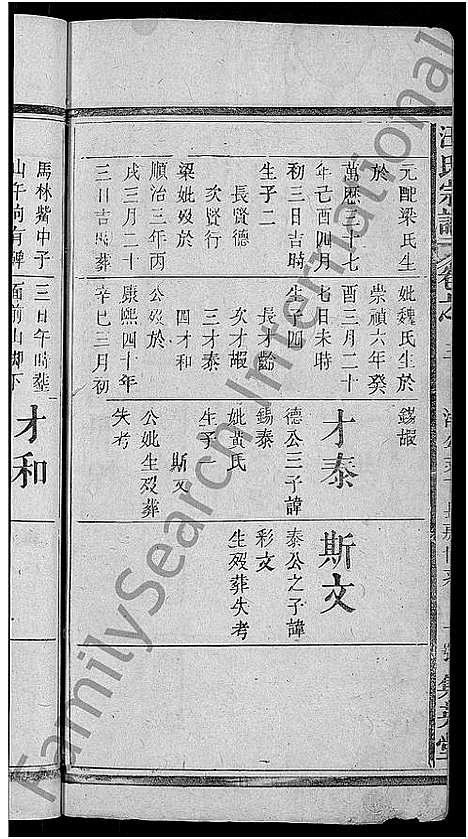 汪氏宗譜
卷之
集義堂
元配梁氏生
於
萬歷三十七
年己酉四月
初三日吉時
生子二
長賢德
次賢行
梁妣歿於
順治三年丙
戌三月二十
三日吉時葬
馬林觜中子
山午向有碑
妣魏氏生於
崇禎六年癸
酉三月二十
七日未時
生子四
長才齡
次才嘏
三才泰
四才和
公歿於
康熙四十年
辛巳三月初
三日午時葬
面前山脚下
錫嘏
才泰
德公三子諱
錫泰
妣黃氏
生子一
斯文
公妣生歿葬
失考
才和
斯文
泰公之子諱
彩文
生歿葬失考
FamilySearch International